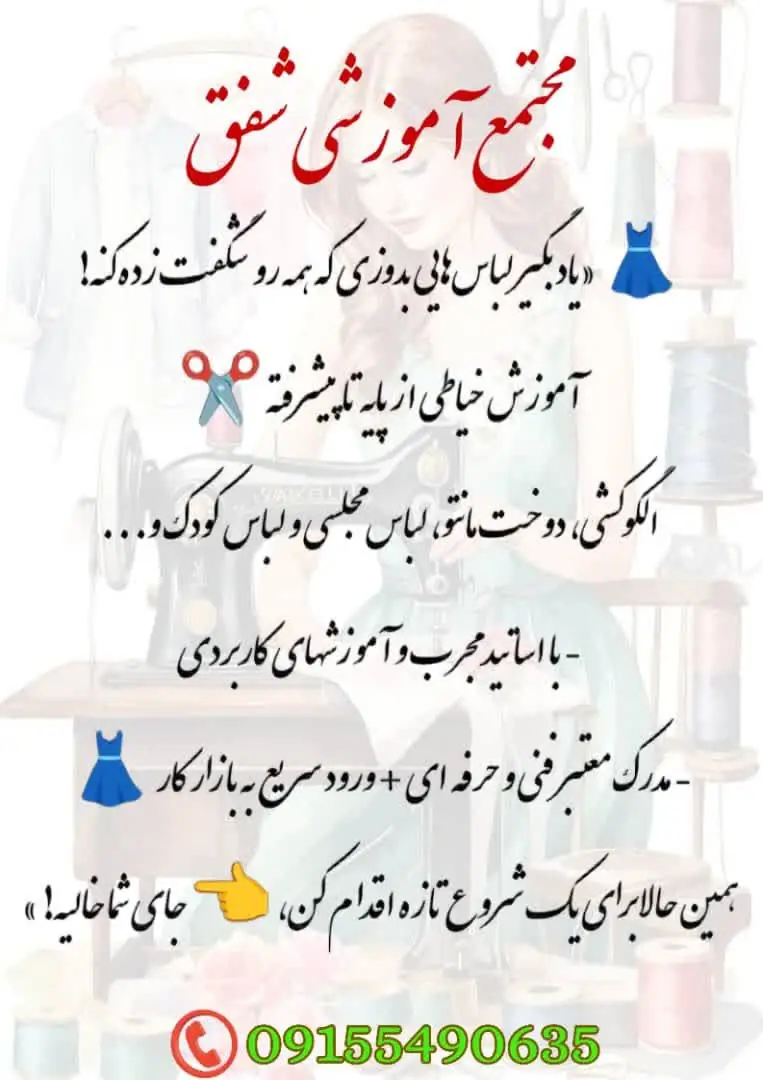 مجتمع آموزشی شفق
👗 «یاد بگیر لباس هایی بدوزی که همه رو شگفت زده کنه!
آموزش خیاطی از پایه تا پیشرفته ✂️
الگوکشی، دوخت مانتو، لباس مجلسی و لباس کودک و...
- با اساتید مجرب و آموزشهای کاربردی
- مدرک معتبر فنی و حرفه ای + ورود سریع به بازار کار 👗
همین حالا برای یک شروع تازه اقدام کن، 👈 جای شما خالیه! »
09155490635